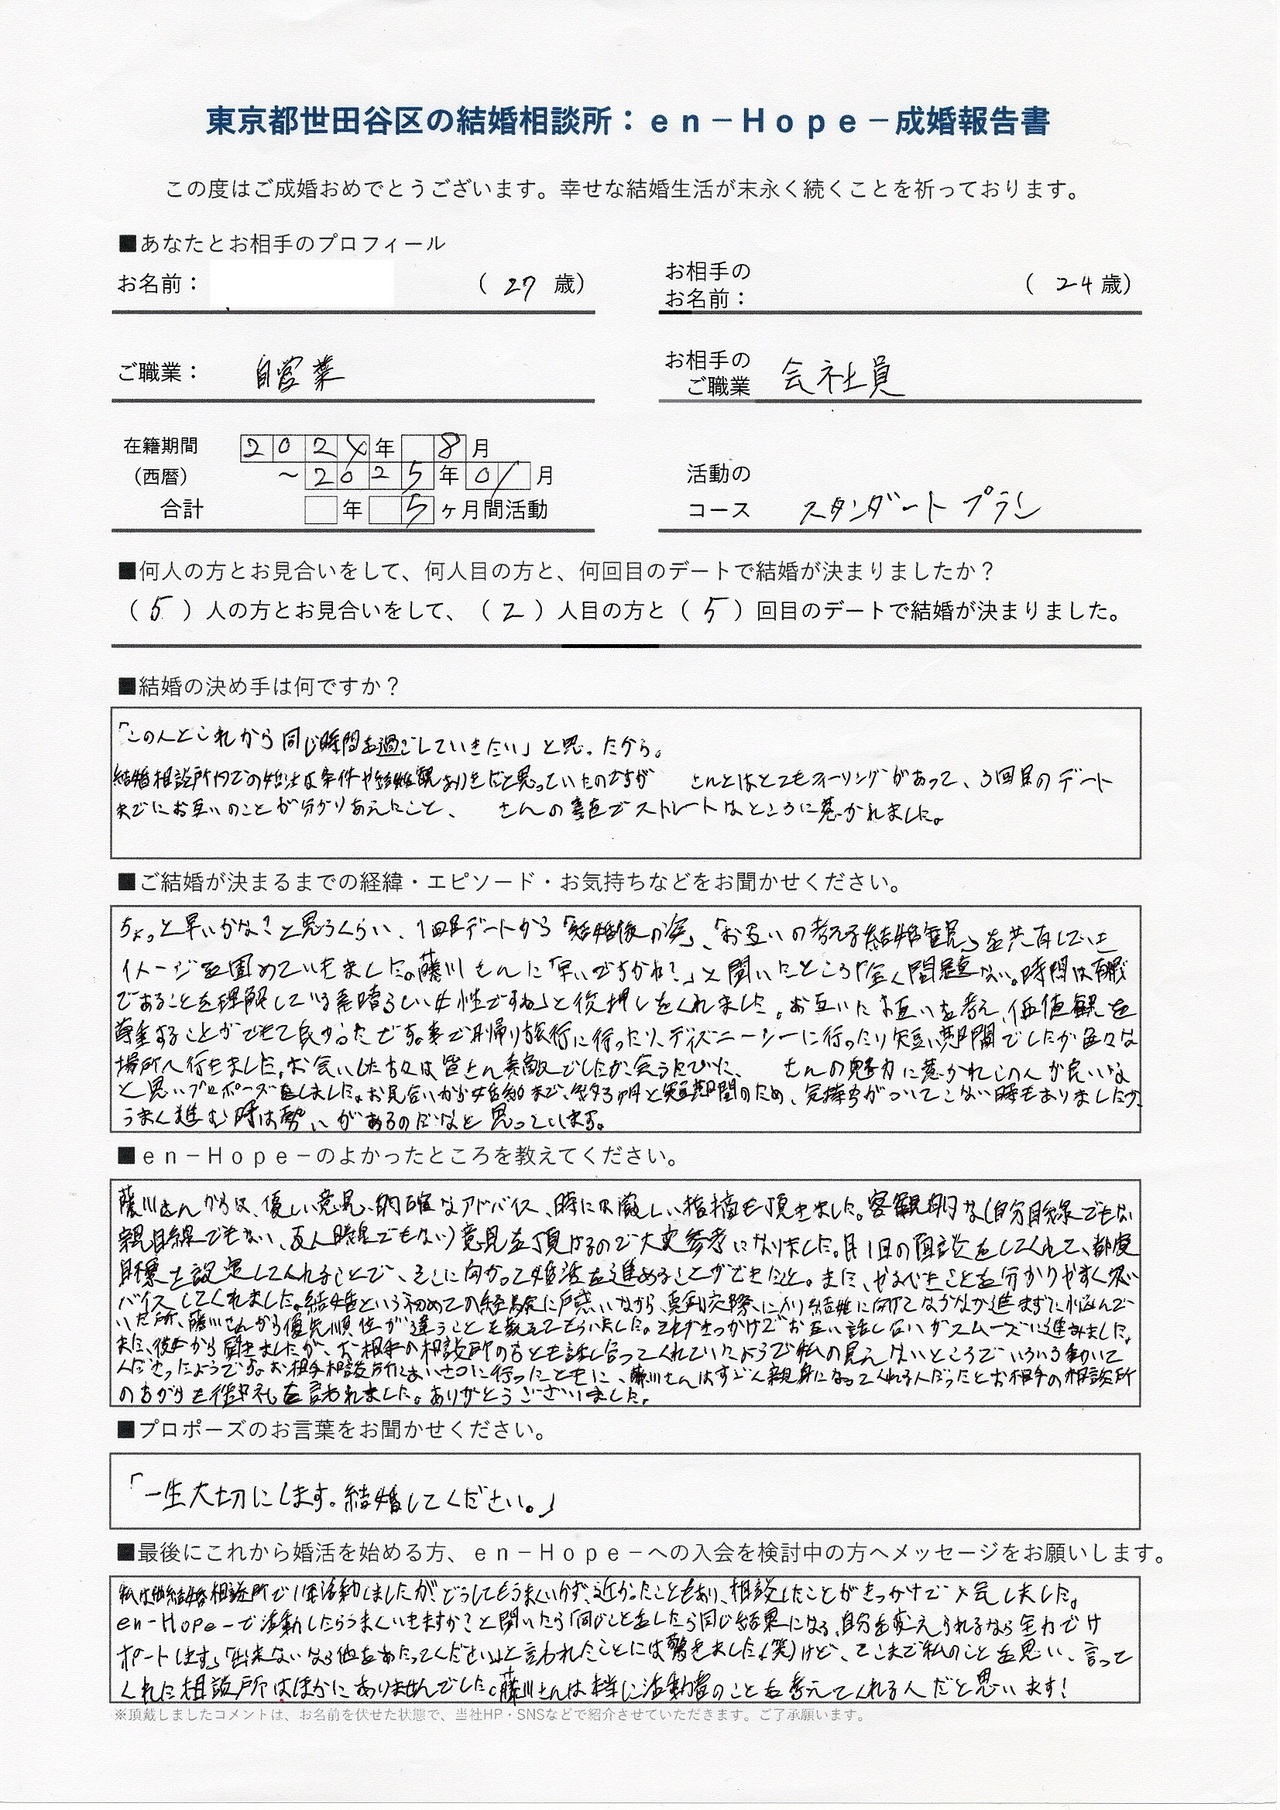 東京都世田谷区の結婚相談所：ｅｎ－Ｈｏｐｅ－成婚報告書
この度はご成婚おめでとうございます。幸せな結婚生活が末永く続くことを祈っております。
■あなたとお相手のプロフィール
お名前： （ 27 歳） お相手の お名前： （ 24 歳）
ご職業： 自営業 お相手の ご職業 会社員
在籍期間 2024年 8月
（西暦） ～2025年01月 活動の
合計 年 5ヶ月間活動 コース スタンダートプラン
■何人の方とお見合いをして、何人目の方と、何回目のデートで結婚が決まりましたか？
（ 5 ）人の方とお見合いをして、（ 2 ）人目の方と（ 5 ）回目のデートで結婚が決まりました。
■結婚の決め手は何ですか？
「この人とこれから同じ時間を過ごしていきたい」と思ったから。
結婚相談所内での婚活は条件や結婚観ありきだと思っていたのですが さんとはとてもフィーリングがあって、3回目のデート
までにお互いのことが分かりあえたこと、 さんの素直でストレートなところに惹かれました。
■ご結婚が決まるまでの経緯・エピソード・お気持ちなどをお聞かせください。
ちょっと早いかな？と思うくらい、1回目デートから「結婚後の姿」、「お互いの考える結婚観」を共有していき
イメージを固めていきました。藤川さんに「早いですかね？」と聞いたところ「全く問題ない。時間は有限
であることを理解している素晴らしい女性ですね」と後押しをくれました。お互いにお互いを考え、価値観を
尊重することができて良かったです。車で日帰り旅行に行ったり、ディズニーシーに行ったり短い期間でしたが色々な
場所へ行きました。お会いした方々は皆さん素敵でしたが会うたびに、 さんの魅力に惹かれこの人が良いな
と思いプロポーズをしました。お見合いから婚約まで、約3ヶ月と短期間のため、気持ちがついてこない時もありましたが、
うまく進む時は勢いがあるのだなと思っています。
■ｅｎ－Ｈｏｐｅ－のよかったところを教えてください。
藤川さんからは、優しい意見、的確なアドバイス、時には厳しい指摘も頂きました。客観的な（自分目線でもない
親目線でもない、友人目線でもない）意見を頂けるので大変参考になりました。月1回の面談をしてくれて、都度
目標を設定してくれることで、そこに向かって婚活を進めることができたこと。また、やるべきことを分かりやすくアド
バイスしてくれました。結婚という初めての経験に戸惑いながら、真剣交際に入り結婚に向けてなかなか進まずに悩んで
いた所、藤川さんから優先順位が違うことを教えてもらいました。それがきっかけでお互い話し合いがスムーズに進みました。
また、後から聞きましたが、お相手の相談所の方とも話し合ってくれていたようで私の見えないところでいろいろ動いて
くださったようです。お相手相談所にあいさつに行ったときに、藤川さんはすごく親身になってくれる人だったとお相手の相談所
の方からも御礼を言われました。ありがとうございました。
■プロポーズのお言葉をお聞かせください。
「一生大切にします。結婚してください。」
■最後にこれから婚活を始める方、ｅｎ－Ｈｏｐｅ－への入会を検討中の方へメッセージをお願いします。
私は他結婚相談所で1年活動しましたが、どうしてもうまくいかず、近かったこともあり、相談したことがきっかけで入会しました。
en-Hope-で活動したらうまくいきますか？と聞いたら「同じことをしたら同じ結果になる、自分を変えられるなら全力でサ
ポートします」「出来ないなら他をあたってください」と言われたことには驚きました（笑）けど、ここまで私のことを思い、言って
くれた相談所はほかにありませんでした。藤川さんは本当に活動者のことを考えてくれる人だと思います！
※頂戴しましたコメントは、お名前を伏せた状態で、当社HP・SNSなどで紹介させていただきます。ご了承願います。